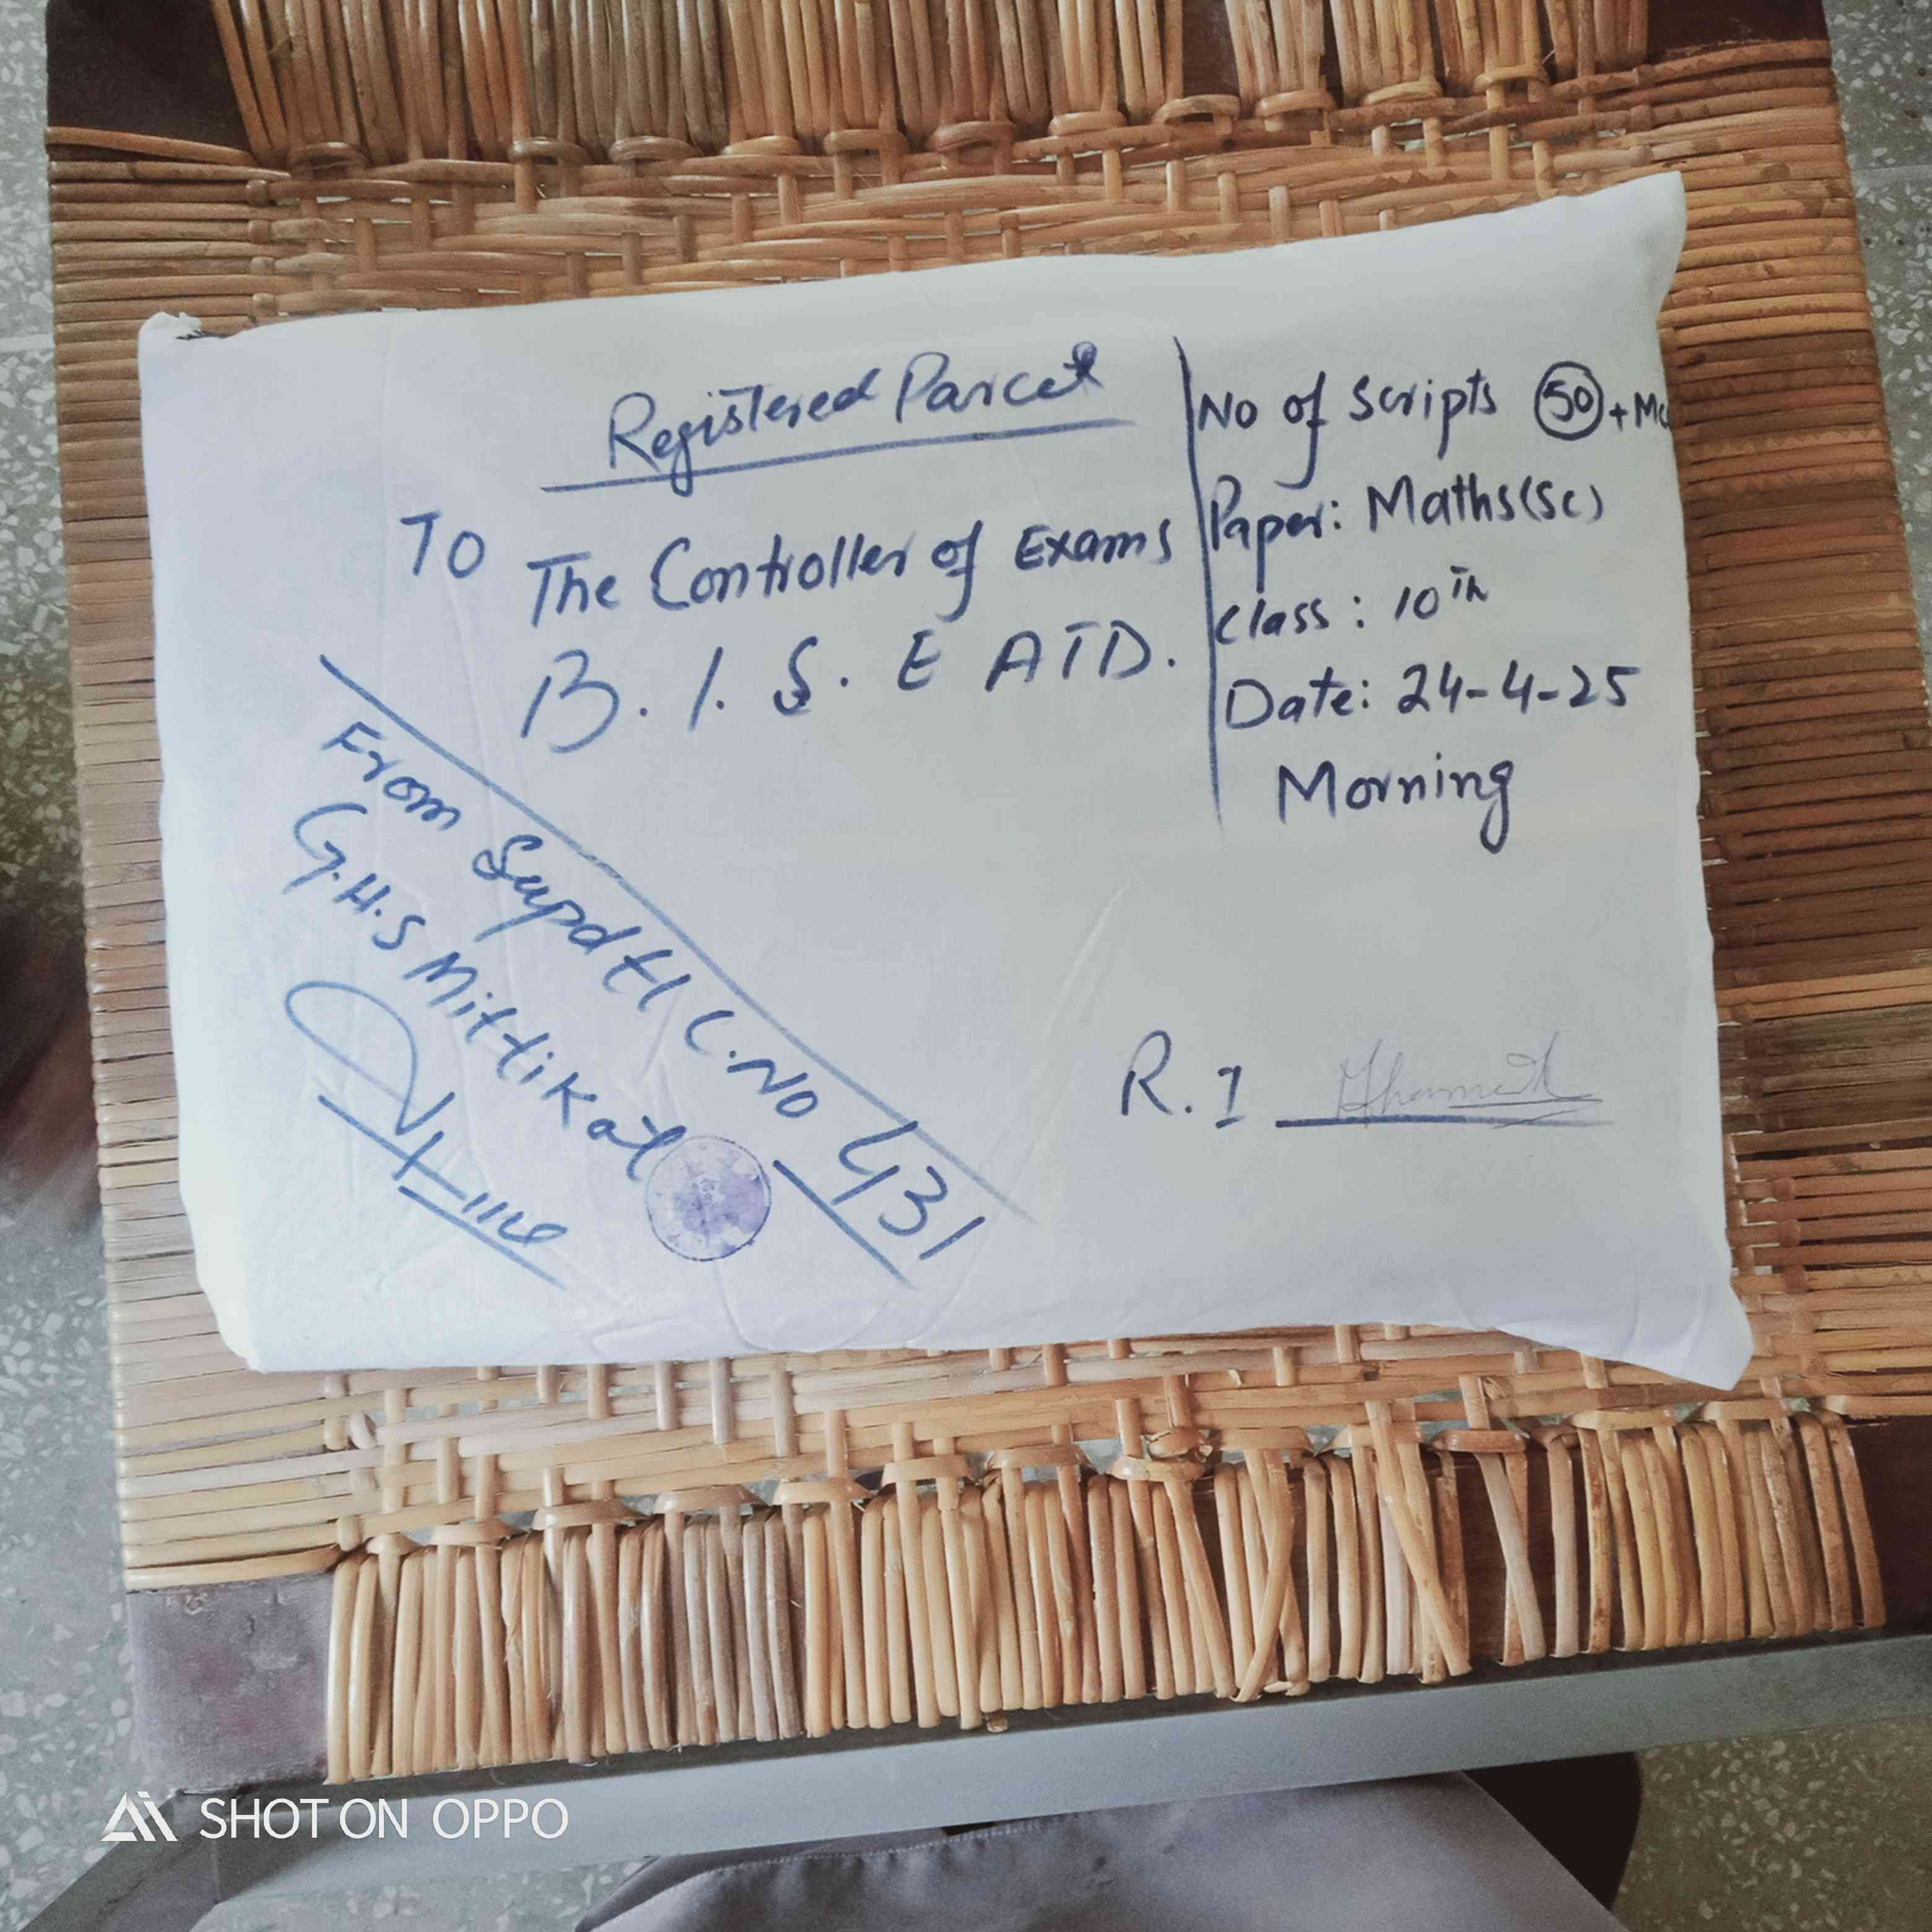 Registered Parcel
To
The Controller of Exams
B.I.S.E ATD.
No of Scripts 50 +
Paper: Maths(Sc)
Class: 10th
Date: 24-4-25
Morning
From Supdtt C.No 431
G.H.S Mittikot
R.I
SHOT ON OPPO